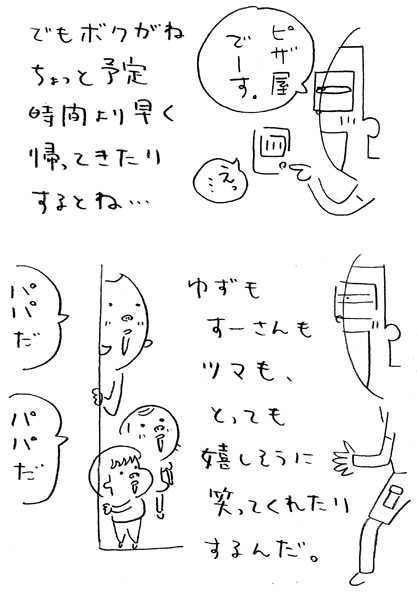 でもボクがね
ちょっと予定
時間より早く
帰ってきたり
するとね…
ピザ屋
でーす。
えっ
…
ゆずも
すーさんも
ツマも、
とっても
嬉しそうに
笑ってくれたり
するんだ。
パパだ
パパだ